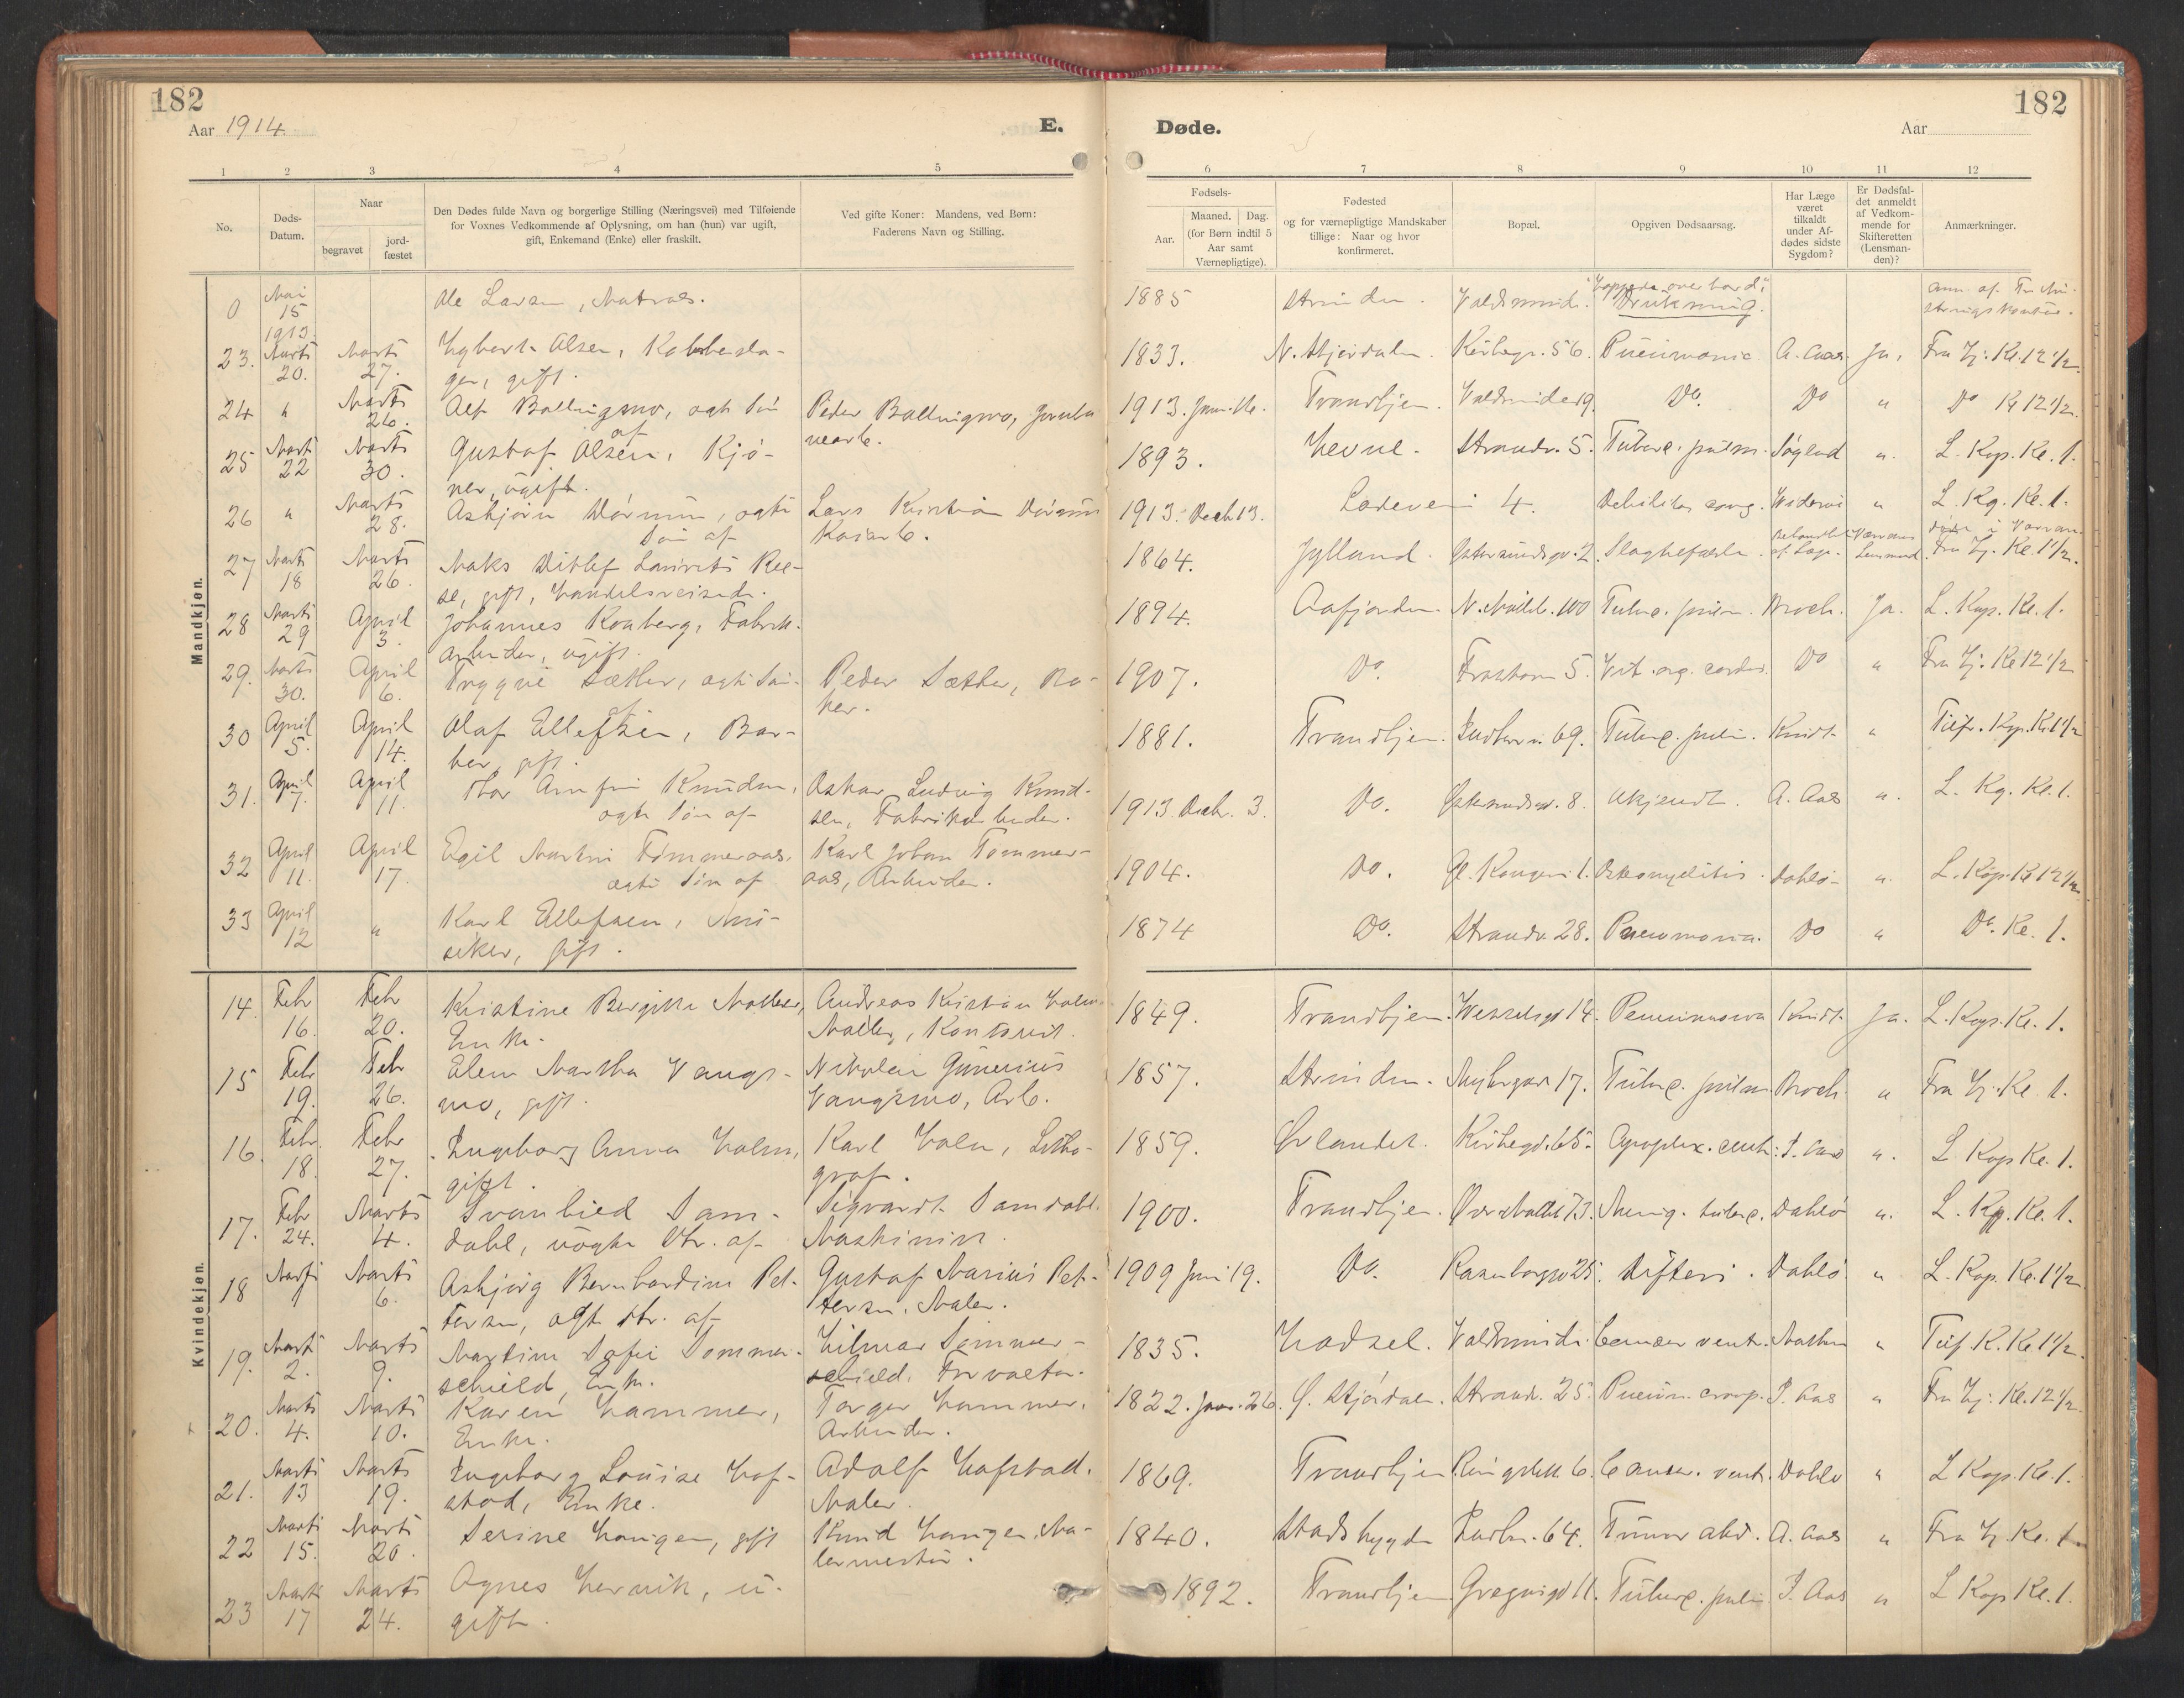 182
182
Aar 1914.
E.
Døde.
Aar
1 2 3 4 5 6 7 8 9 10 11 12
No.
Døds-
Datum.
Naar
begravet
jord-
fæstet
Den Dødes fulde Navn og borgerlige Stilling (Næringsvei) med Tilføiende
for Voxnes Vedkommende af Oplysning, om han (hun) var ugift,
gift, Enkemand (Enke) eller fraskilt.
Ved gifte Koner: Mandens, ved Børn:
Faderens Navn og Stilling.
Fødsels-
Aar.
Maaned. Dag.
(for Børn indtil 5
Aar samt
Værnepligtige).
Fødested
og for værnepligtige Mandskaber
tillige: Naar og hvor
konfirmeret.
Bopæl.
Opgiven Dødsaarsag.
Har Læge
været
tilkaldt
under Af-
dødes sidste
Sygdom?
Er Dødsfal-
det anmeldt
af Vedkom-
mende for
Skifteretten
(Lensman-
den)?
Anmærkninger.
Mandkjøn.
0 Mai 15 1913. Ole Larsen, Matros. 1885 Strinden. overbord Drukning.
23. Marts 20. Marts 27. gift. 1833. N. Stjørdalen. Kirkegt. 56. Pneumonie A. Aas. Ja. Fra Hj. Kl. 12 1/2.
24 " Marts 26. Alf Ballingsmo, ægte Søn af Peder Ballingsmo, 1913. Janr. 16. Trondhjem. Do. Do " Do Kl 12 1/2.
25 Marts 22 Marts 30. Gustaf Olsen, ugift. 1893. Hevne. Strandv. 5. Tuberc. pulm. " L. Kap. Kl. 1.
26 " Marts 28. Asbjørn ægte Søn af Lars Kristian 1913. Decb 13. Ladeveien 4. Debilitas cong. " L. Kp. Kl. 1.
27 Marts 18 Marts 26. Maks Ditlef Lauritz gift, Handelsreisende. 1864. Jylland. 2. Fra Hj. Kl. 1 1/2.
28 Marts 29 April 3. Johannes Fabrik-
arbeider, ugift. 1894. Aafjorden. N. Mølleb. 100 Tuberc. pulm. Broch. Ja. L. Kap. Kl. 1.
29. Marts 30. April 6. Tryggve Sæther, ægte Søn af Peder Sæther, 1907. Do. 5. Vit. org. cordis. Do " Fra Hj. Kl 12 1/2
30 April 5. April 14. Olaf Ellefsen, Bar-
ber, gift. 1881. Trondhjem. 69. Tuberc. pulm. Knudt. "
31. April 7. April 11. Thor Arnfin Knudsen, ægte Søn af Oskar Ludvig Knud-
sen, Fabrikarbeider. 1913. Decbr. 3. Do. 8. Ukjendt. A. Aas ". L. Kp. Kl. 1.
32 April 11. April 17. Egil Martin Tømmeraas, ægte Søn af Karl Johan Tømmer-
aas, Arbeider. 1904. Do. Gl. Kongev. 1. Osteomyelitis. Dahlø ". L. Kap. Kl 12 1/2.
33 April 12 " Karl Ellefsen, Mu-
siker, gift. 1874 Do. Strandv 28. Pneumonia. Do " Do. Kl. 1.
Kvindekjøn.
14. Febr 16. Febr 20. Kristine Birgitte Møller, Enke. Andreas Kristian Holm Møller, 1849. Trondhjem. Wesselsgd 14. Pneumonia Knudt. Ja. L. Kap. Kl. 1.
15 Febr 19. Febr 26. Elen Martha Vangs-
mo, gift. Nikolai Gunerius
Vangsmo, Arb. 1857. Strinden. 17. Tuberc. pulm. Broch. " Fra Hj. Kl. 1.
16. Febr. 18. Febr 27. Ingeborg Anna Holm, gift. Karl Holm, Litho-
graf. 1859. Ørlandet. Kirkegd. 65. ". L Kap Kl. 1.
17. Febr 24. Marts 4. Svanhild Sam-
dahl, uægte Dtr. af Sigvardt Samdahl. Maskinist. 1900. Trondhjem. 73. Mening. tuberc. Dahlø ". L. Kap. Kl. 1.
18 Marts 1 Marts 6. Asbjørg Bernhardine Pet-
tersen, ægt Dtr. af Gustaf Marius Pet-
tersen, Maler. 1909 Juni 19. Do. Rosenborggd 25. Difteri. Dahlø. " L. Kap. Kl. 1 1/2
19. Marts 2. Marts 9. Martine Sofie Sommer-
schield, Enke. Hilmar Sommer-
schield, Forvalter. 1835. Hadsel. Cancer ventr. "
20. Marts 4. Marts 10. Karen Hammer, Enke. Torger Hammer, Arbeider. 1822. Janr. 26. Ø. Stjørdalen. Strandv. 25. Pneum. croup. P. Aas " Fra Hj. Kl. 12 1/2
21. Marts 13 Marts 19. Ingeborg Louise Hof-
stad, Enke. Adolf Hofstad, Maler. 1869. Trondhjem 6. Cancer. ventr. Dahlø " L Kap. Kl. 1.
22 Marts 15. Marts 20. Serine Haugen, gift Knud Haugen, Ma-
lermester. 1840. Stadsbygden 64. Tumor abd. A. Aas " Fra Hj. Kl. 1.
23 Marts 17 Marts 24. Agnes Hernik, u-
gift. 1892. Trondhjem. 11. Tuberc. pulm P. Aas " L Kap Kl. 1.